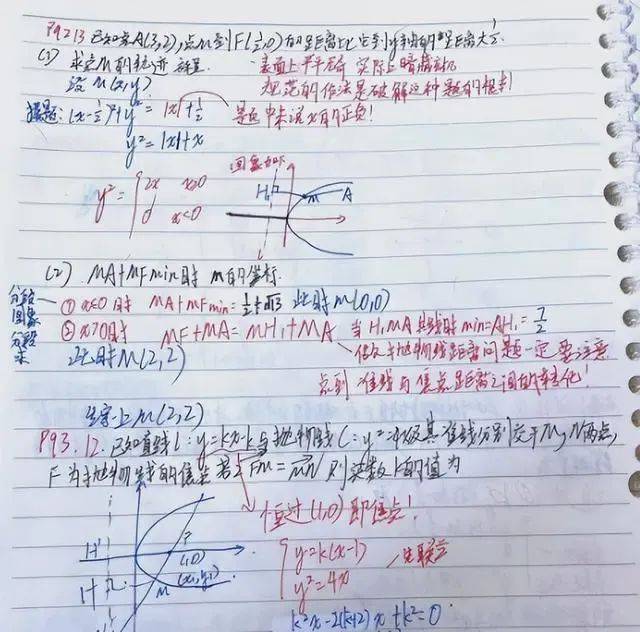 P92 13 已知点A(3,2),点M到F(½,0)的距离比它到y轴的距离大½.
(1) 求点M的轨迹方程. 表面上平平无奇 实际上暗藏玄机
设M(x,y) 规范的作法是破解这种题的根本!
(x-½)²+y² = |x|+½ 题中未说x的正负!
y² = |x|+x
图象如下
y² = { 2x x≥0
0 x<0
H₁ M A
(2) MA+MF min时 M的坐标.
分段图象分段求
① x≤0时 MA+MF min = ½+√13 此时M(0,0)
② x>0时 MF+MA = MH₁+MA 当H₁MA共线时 min=AH₁=7/2
此时M(2,2) 但凡与抛物线距离问题一定要注意
点到准线与焦点距离之间的转化!
综上M(2,2)
P93.12.已知直线l:y=kx-k与抛物线C:y²=4x及其准线分别交于M,N两点,
F为抛物线的焦点 若2FM=MN 则实数k的值为
恒过(1,0)即焦点!
H' F (1,0)
H M (x₁,y₁)
{ y=k(x-1)
y²=4x 先联立
k²x-2(k+2)x+k²=0